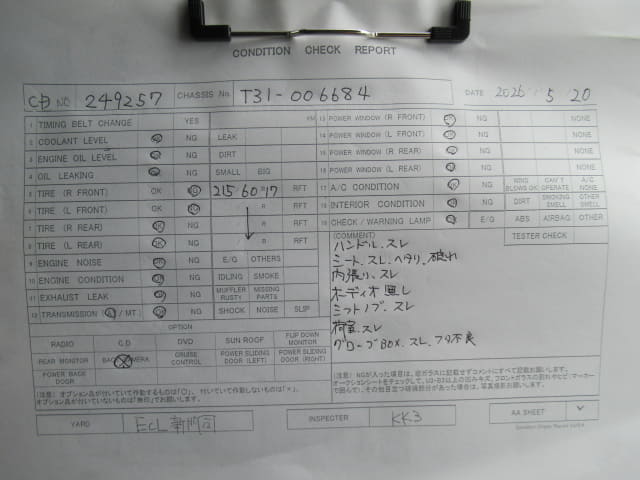 CONDITION CHECK REPORT
NO 249257 CHASSIS No T31-006684 DATE 2026 5 20
1 TIMING BELT CHANGE YES
2 COOLANT LEVEL OK NG LEAK
3 ENGINE OIL LEVEL OK NG DIRT
4 OIL LEAKING OK NG SMALL BIG
5 TIRE (R FRONT) OK NG 215-60-17 RFT
6 TIRE (L FRONT) OK NG R RFT
7 TIRE (R REAR) OK NG R RFT
8 TIRE (L REAR) OK NG R RFT
9 ENGINE NOISE OK NG E/G OTHERS
10 ENGINE CONDITION OK NG IDLING SMOKE
11 EXHAUST LEAK OK NG MUFFLER RUSTY MISSING PARTS
12 TRANSMISSION (A / MT) OK NG SHOCK NOISE SLIP
13 POWER WINDOW (R FRONT) OK NG NONE
14 POWER WINDOW (L FRONT) OK NG NONE
15 POWER WINDOW (R REAR) OK NG NONE
16 POWER WINDOW (L REAR) OK NG NONE
17 A/C CONDITION OK NG WIND BLOWS OK CAN'T OPERATE A/C NONE
18 INTERIOR CONDITION OK NG DIRT SMOKING SMELL OTHER SMELL
19 CHECK / WARNING LAMP OK E/G ABS AIRBAG OTHER
(COMMENT) TESTER CHECK
ハンドル、スレ
シート、スレ、ヘタリ、破れ
内張り、スレ
オーディオ無し
シフトノブ、スレ
荷室、スレ
グローブBOX、スレ、フタ不良
OPTION
RADIO C.D DVD SUN ROOF FLIP DOWN MONITOR
REAR MONITOR BACK CAMERA CRUISE CONTROL POWER SLIDING DOOR (LEFT) POWER SLIDING DOOR (RIGHT)
POWER BACK DOOR
(注意) オプション品が付いていて作動するものは「○」、付いていて作動しないものは「×」、
オプション品が付いていないものは「無印」でお願いします。
YARD ECL INSPECTER KK3 AA SHEET